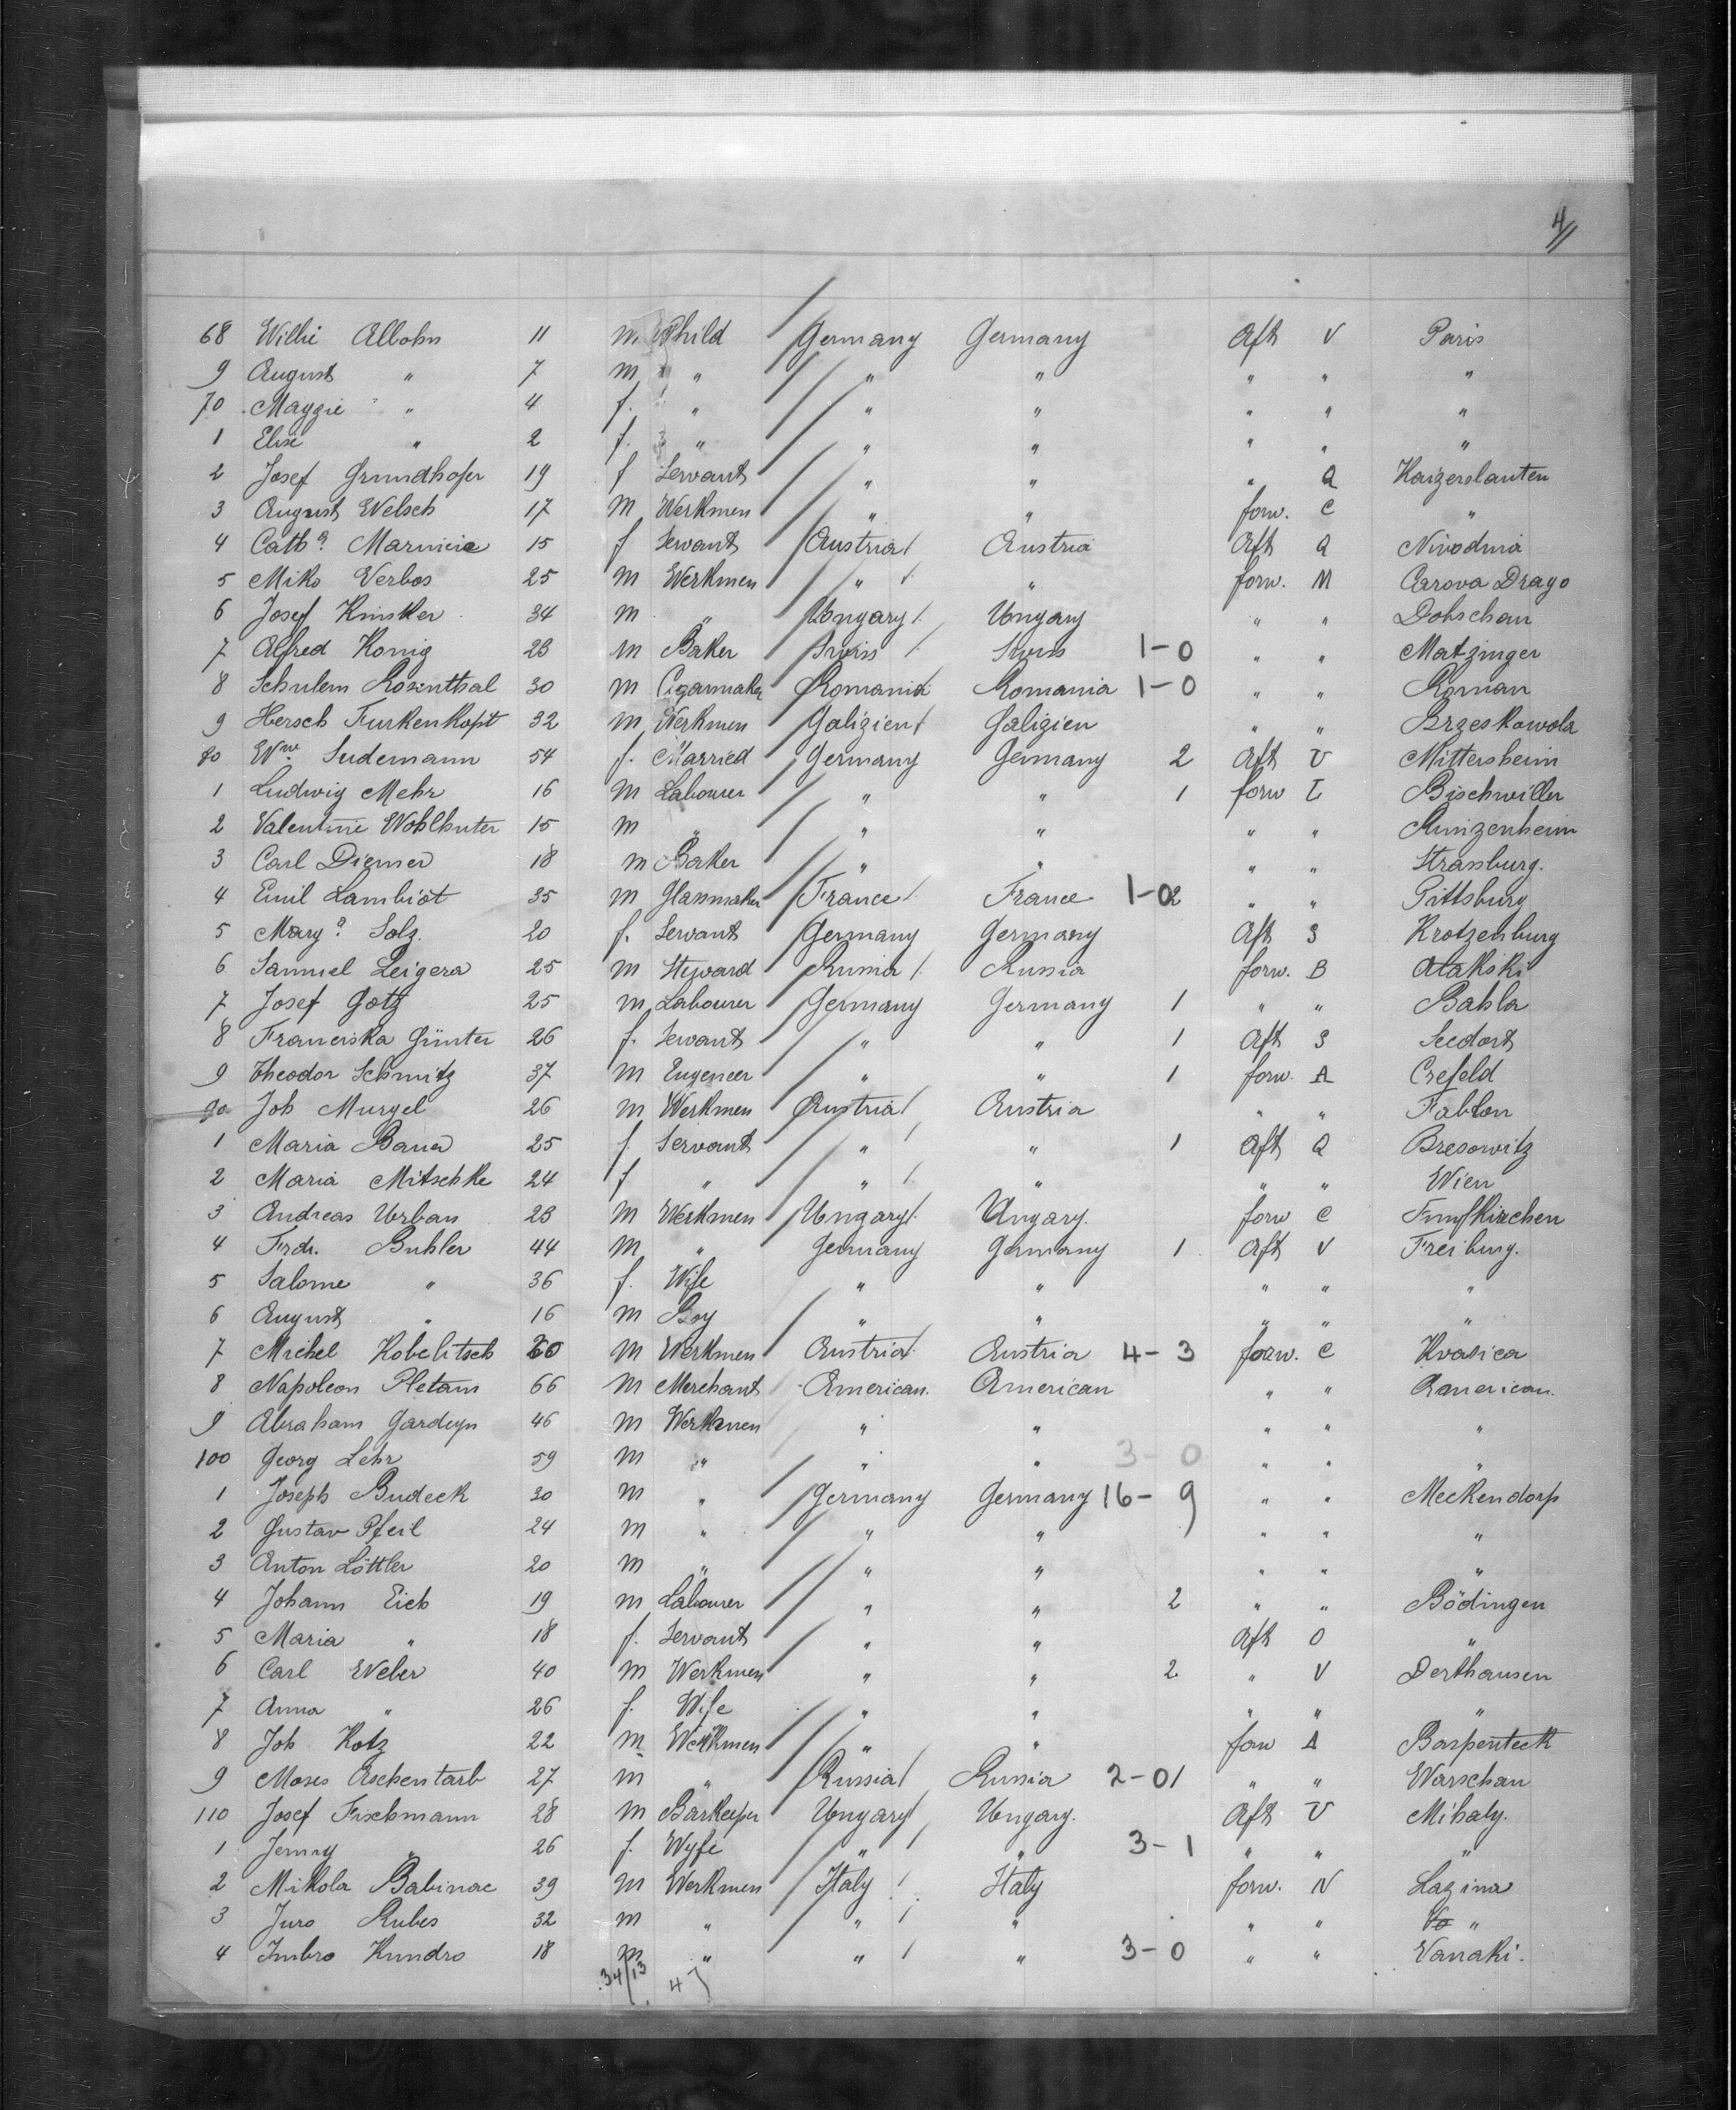 4/
68 Willie Albohn 11 m. Child Germany Germany Aft V Paris
9 August " 7 m " " " " " "
70 Maggie " 4 f. " " " " " "
1 Elise " 2 f. " " " " " "
2 Josef Grundhofer 19 f Servant " " " Q Kaizerslauten
3 August Welsch 17 M Werkmen " " forw. C "
4 Cath.a 15 f Servant Austria Austria Aft Q
5 Miko Verbos 25 M Werkmen " " forw. M Carova Drago
6 Josef Kinsker 34 m " Ungary Ungary " " Dobschau
7 Alfred Konig 23 m Baker Swiss Swiss 1-0 " " Matzinger
8 Schulem Rosenthal 30 m Cigarmaker Romania Romania 1-0 " " Roman
9 Hersch Furkenkopt 32 m Werkmen Galizien Galizien " " Brzeskowola
80 Wwe Sudemann 54 f. Married Germany Germany 2 Aft V Mittersheim
1 Ludwig Mehr 16 M Labourer " " 1 forw T Bischwiller
2 Valentine Wohlhuter 15 m " " " " " Runzenheim
3 Carl Diemer 18 m Baker " " " " Strassburg.
4 Emil Lambiot 35 m Glassmaker France France 1-0 2 " " Pittsburg
5 Marg.a Solz. 20 f. Servant Germany Germany Aft S Krotzenburg
6 Samuel Leigera 25 m Steward Russia Russia forw. B Atakski
7 Josef Gotz 25 m Labourer Germany Germany 1 " " Bahla
8 Franciska Günter 26 f. Servant " " 1 Aft S Seedort
9 Theodor Schmitz 37 m Engeneer " " 1 forw. A Crefeld
90 Joh Murgel 26 m Werkmen Austria Austria " " Fablon
1 Maria Bauer 25 f. Servant " " 1 Aft Q Bresowitz
2 Maria Mitschke 24 f " " " " " Wien
3 Andreas Urban 23 M Werkmen Ungary Ungary. forw C Funfkirchen
4 Frdr. Buhler 44 M " Germany Germany 1 Aft V Freiburg.
5 Salome " 36 f. Wife " " " " "
6 August " 16 m Boy " " " " "
7 Michel Kobelitsch 20 M Werkmen Austria Austria 4-3 forw. C Kvasica
8 Napoleon Pletain 66 M Merchant American. American " " American.
9 Abraham Gardeyn 46 M Werkmen " " " " "
100 Georg Lehr 59 m " " " 3-0 " " "
1 Joseph Budeck 30 m " Germany Germany 16-9 " " Meckendorf
2 Gustav Pfeil 24 m " " " " " "
3 Anton Löttler 20 m " " " " " "
4 Johann Eich 19 m Labourer " " 2 " " Bödingen
5 Maria " 18 f. Servant " " Aft O "
6 Carl Weber 40 m Werkmen " " 2 " V Derthausen
7 Anna " 26 f. Wife " " " " "
8 Joh Kotz 22 m Werkmen " " forw A Barpenteck
9 Moses Aschentarb 27 m " Russia Russia 2-0 1 " " Warschau
110 Josef Fischmann 28 m Barkeeper Ungary Ungary. Aft V Mihaly.
1 Jenny " 26 f. Wyfe " " 3-1 " " "
2 Mikola Babinac 39 m Werkmen Italy Italy forw. N Lazina
3 Juro Rubes 32 m " " " " " "
4 Imbro Kundro 18 m " " " 3-0 " " Vanaki.
34/13 47